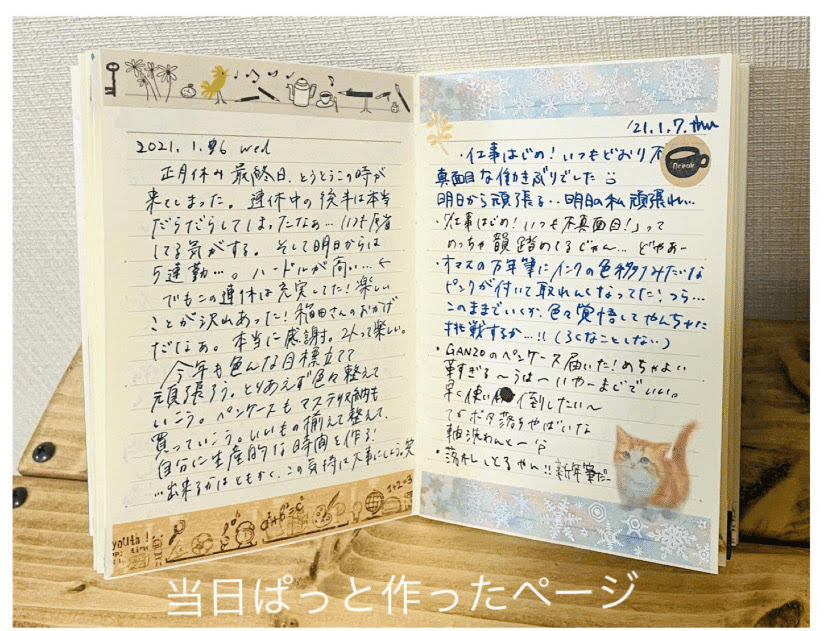 2021. 1. 6 wed
正月休み最終日、とうとうこの時が
来てしまった。連休中の後半は本当
だらだらしてしまったなぁ…いつも反省
してる気がする。そして明日からは
5連勤…。ハードルが高い…
でもこの連休は充実してた!楽しい
ことが沢山あった!稲田さんのおかげ
だなぁ。本当に感謝。2人って楽しい。
今年も色んな目標立てて
頑張ろう。とりあえず色々整えて
いこう。ペンケースもマステ収納も
買っていこう。いいもの揃えて整えて、
自分に生産的な時間を作る!
…出来るかはともかく、この気持は大事にしよう。笑
youta!
a+b=c
1+2=3
'21.1.7.thu
Break
・仕事はじめ!いつもどおり不
真面目な働きぶりでした
明日から頑張る‥明日の私頑張れ…
・「仕事はじめ!いつも不真面目!」って
めっちゃ韻踏めてるじゃん…どやぁー
・オマスの万年筆にインクの色移りみたいな
ピンクが付いて取れんくなってた!つら…
このままでいくか、色々覚悟してやんちゃに
挑戦するか…!!(ろくなことしない)
・GANZOのペンケース届いた!めちゃよい
革すぎる〜うは〜いやーまじでいい。
早く使い倒したい〜
てかボタ落ちやばいな
軸洗わんとー
・落札しとるやん!!新年筆だー
当日ぱっと作ったページ